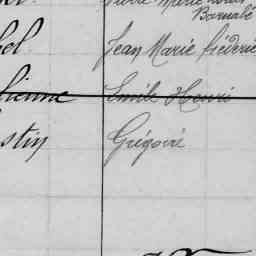 Barnabé
bel Jean Marie Frédéric
lienne Emile Henri
stin Grégoire